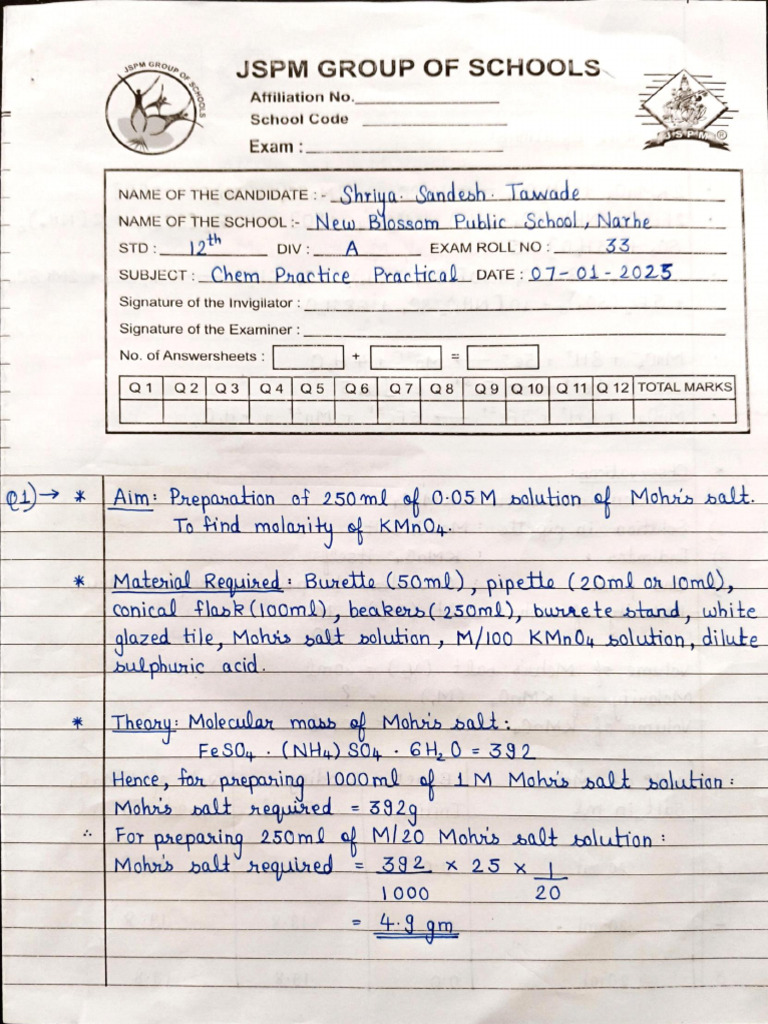 JSPM GROUP OF SCHOOLS
JSPM GROUP OF SCHOOLS
Affiliation No.
School Code
Exam :
JSPM ®
NAME OF THE CANDIDATE :- Shriya Sandesh Tawade
NAME OF THE SCHOOL :- New Blossom Public School, Narhe
STD : 12th DIV : A EXAM ROLL NO : 33
SUBJECT : Chem Practice Practical DATE : 07-01-2025
Signature of the Invigilator :
Signature of the Examiner :
No. of Answersheets : + =
Q 1 Q 2 Q 3 Q 4 Q 5 Q 6 Q 7 Q 8 Q 9 Q 10 Q 11 Q 12 TOTAL MARKS
Q1) → * Aim: Preparation of 250ml of 0.05M solution of Mohr's salt.
To find molarity of KMnO4.
* Material Required: Burette (50ml), pipette (20ml or 10ml),
conical flask (100ml), beakers (250ml), burrete stand, white
glazed tile, Mohr's salt solution, M/100 KMnO4 solution, dilute
sulphuric acid.
* Theory: Molecular mass of Mohr's salt:
FeSO4 · (NH4) SO4 · 6H2O = 392
Hence, for preparing 1000ml of 1M Mohr's salt solution:
Mohr's salt required = 392g
∴ For preparing 250ml of M/20 Mohr's salt solution:
Mohr's salt required = 392/1000 × 25 × 1/20
= 4.9 gm